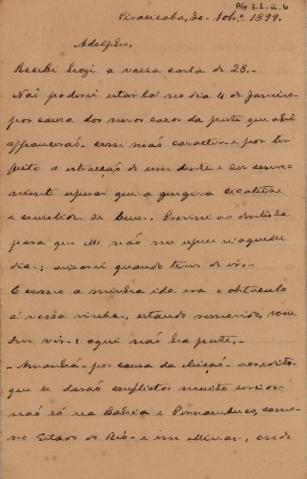 PG 3.1.2.6
Piracicaba, 30 - 1899.
Adolpho.
Recebi hoje a vossa carta de 28.-
Não poderei estar lá no dia 4 de Janeiro
por causa dos novos casos da peste que ahi
por ter
feito a extracção de um dente e ser conve-
niente esperar que a gengiva cicatrise
Preveni ao dentista
para que elle não me espere n'aquelle
dia; quando tenho de ir.
E como a minha ida era o obstaculo
á vossa vinda, estando removido,
aqui não ha peste.-
- Amanhã - por causa da
que se darão conflictos muito serios
não só na Bahia e Pernambuco, como
no Estado do Rio - e em Minas, onde